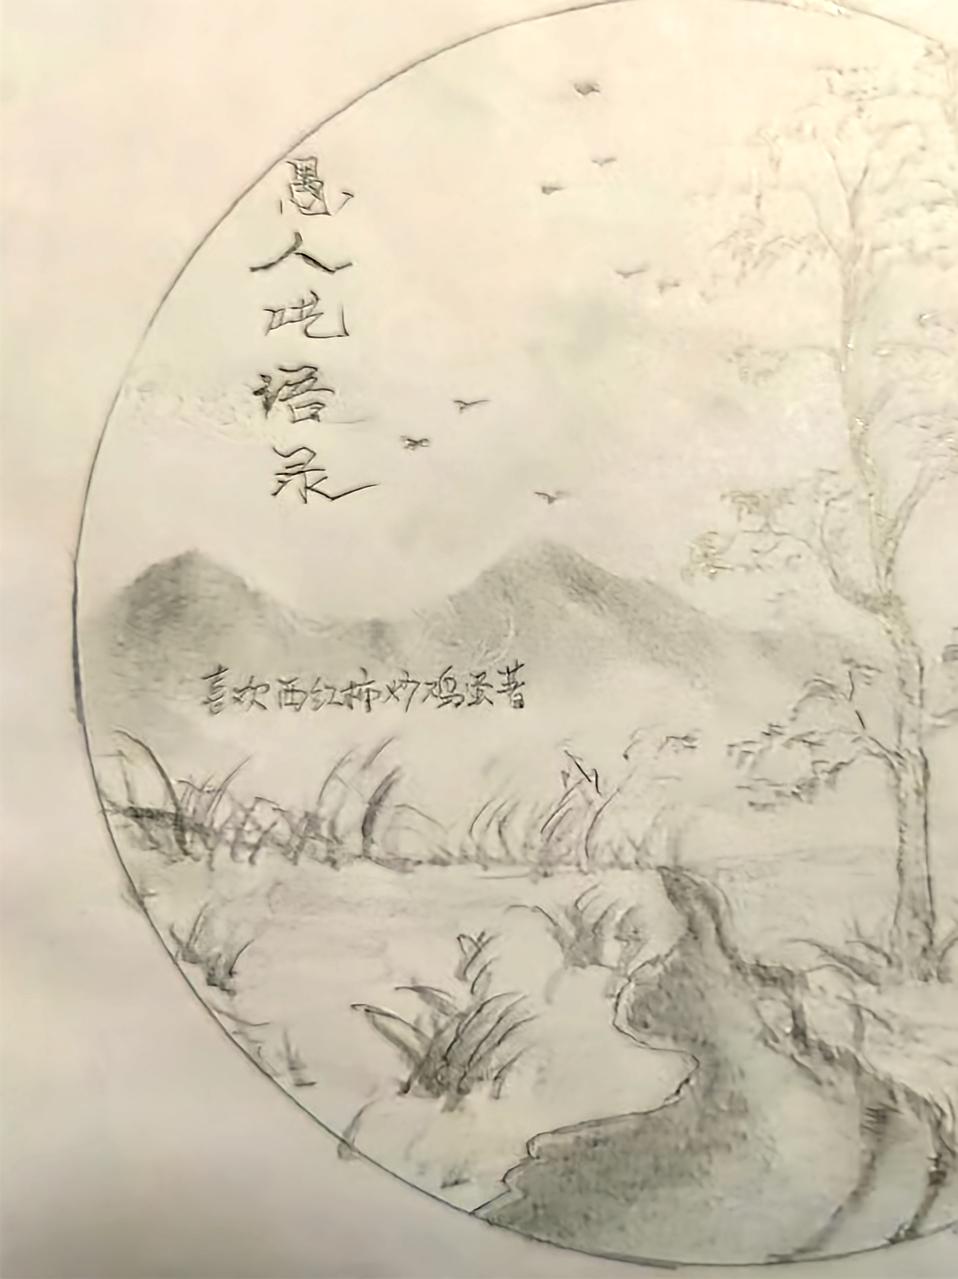 愚人呓语录
喜欢西红柿炒鸡蛋著